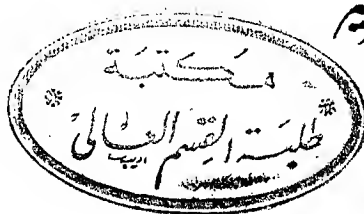 مكتبة
طلبة القسم العالى